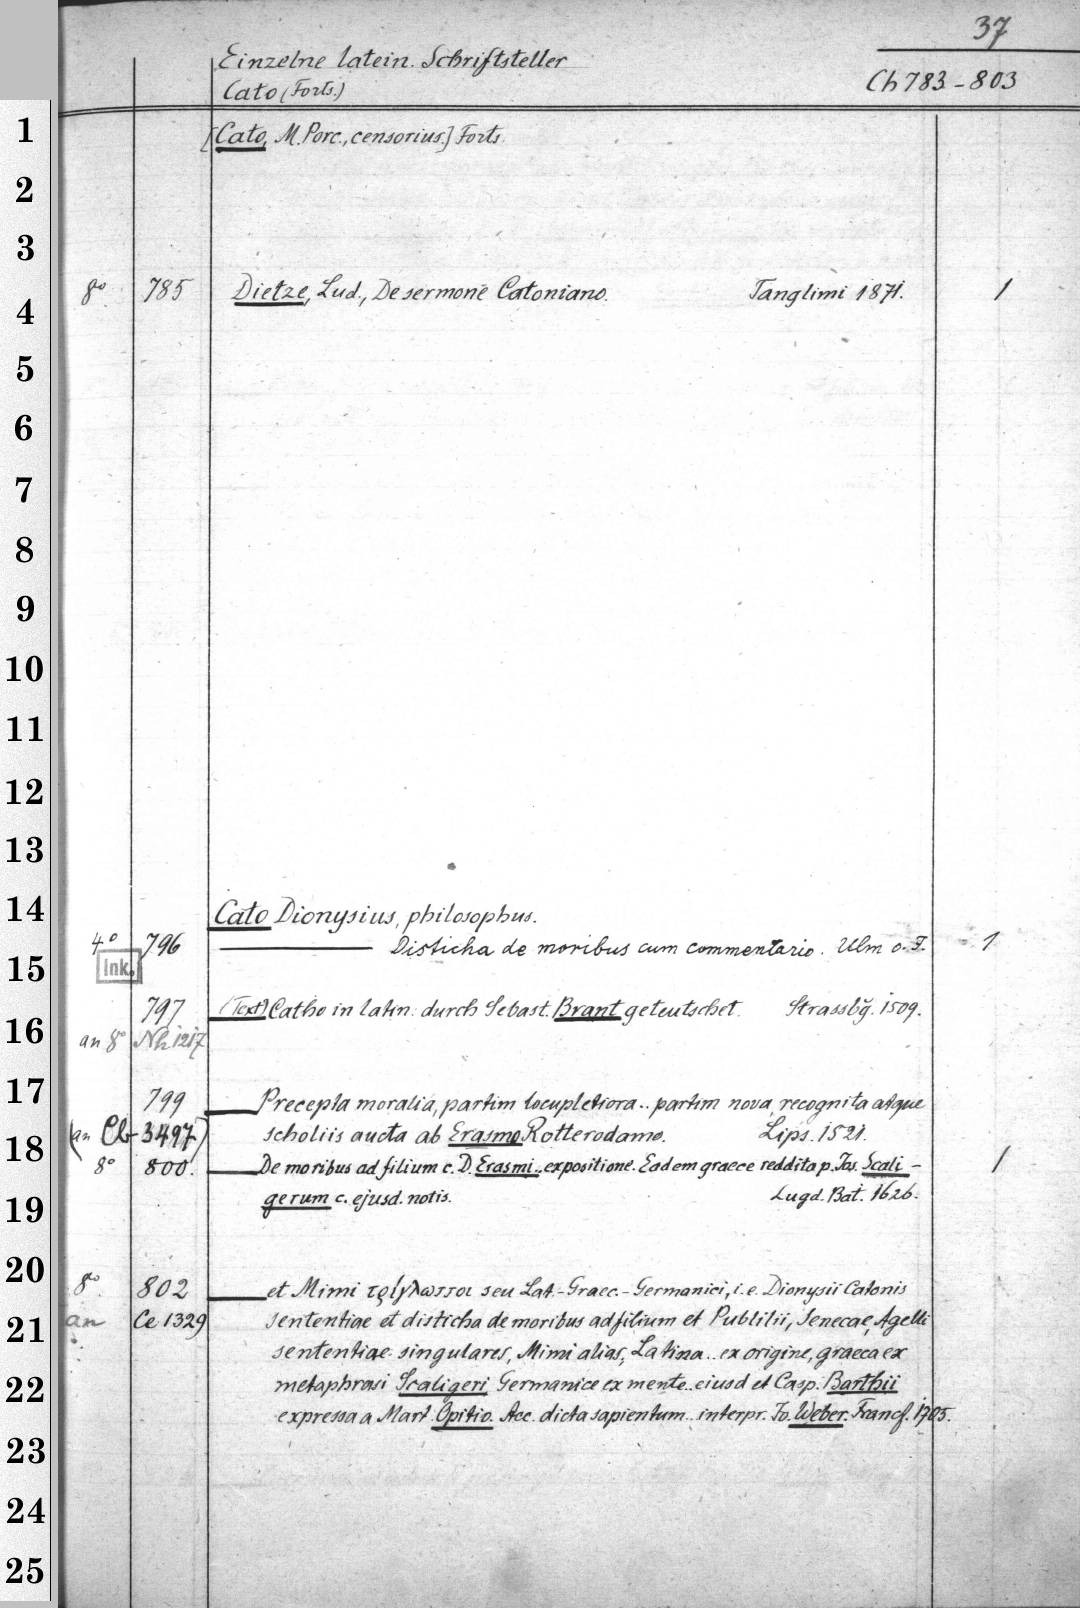 37
Einzelne latein. Schriftsteller
Cato (Forts.)
Ch 783-803
1
[Cato, M. Porc., censorius.] Forts.
2
3
8° 785 Dietze, Lud., De sermone Catoniano. 1871. 1
4
5
6
7
8
9
10
11
12
13
14
Cato Dionysius, philosophus.
4° 796 Disticha de moribus cum commentario. Ulm o. J. 1
15
Ink.
797 (Text) Catho in latin. durch Sebast. Brant geteutschet. Strassbg. 1509.
16
an 8° Nh 1217
17
799 Precepta moralia, partim locupletiora .. partim nova, recognita atque
(an Cb 3497) scholiis aucta ab Erasmo Rotterodamo. Lips. 1521.
18
8° 800. De moribus ad filium c. D. Erasmi .. expositione. Eadem graece reddita p. Jos. Scali- 1
19
gerum c. ejusd. notis. Lugd. Bat. 1626.
20
8° 802 et Mimi τρίγλωττοι seu Lat.-Graec.-Germanici, i. e. Dionysii Catonis
21
an Ce 1329 sententiae et disticha de moribus ad filium et Publilii, Senecae, Agelli
sententiae singulares, Mimi alias, Latina .. ex origine, graeca ex
22
metaphrasi Scaligeri Germanice ex mente .. eiusd et Casp. Barthii
expressa a Mart. Opitio. Acc. dicta sapientum .. interpr. Jo. Weber. Francf. 1705.
23
24
25